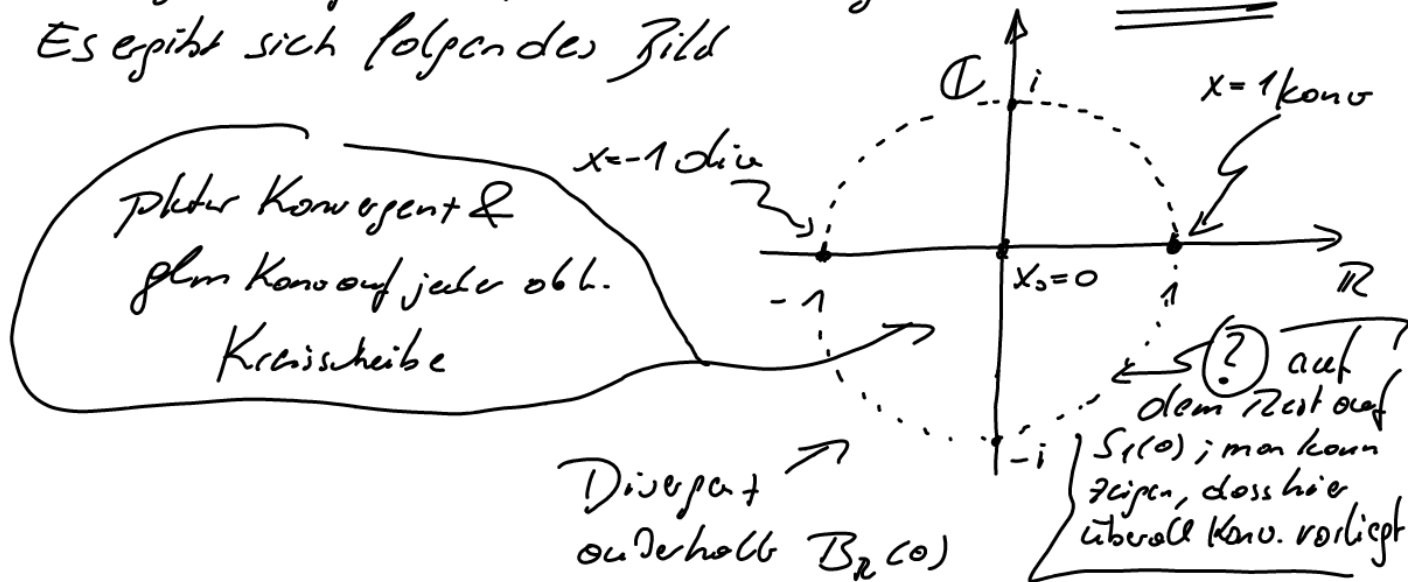 Es ergibt sich folgendes Bild
ℂ
i
x=1 konv
x=-1 div
pktw Konvergent &
glm Konv auf jeder abg.
Kreisscheibe
-1
x₀=0
1
ℝ
? auf
dem Rest auf
S₁(0); man kann
zeigen, dass hier
überall Konv. vorliegt
-i
Divergent
außerhalb B_R(0)